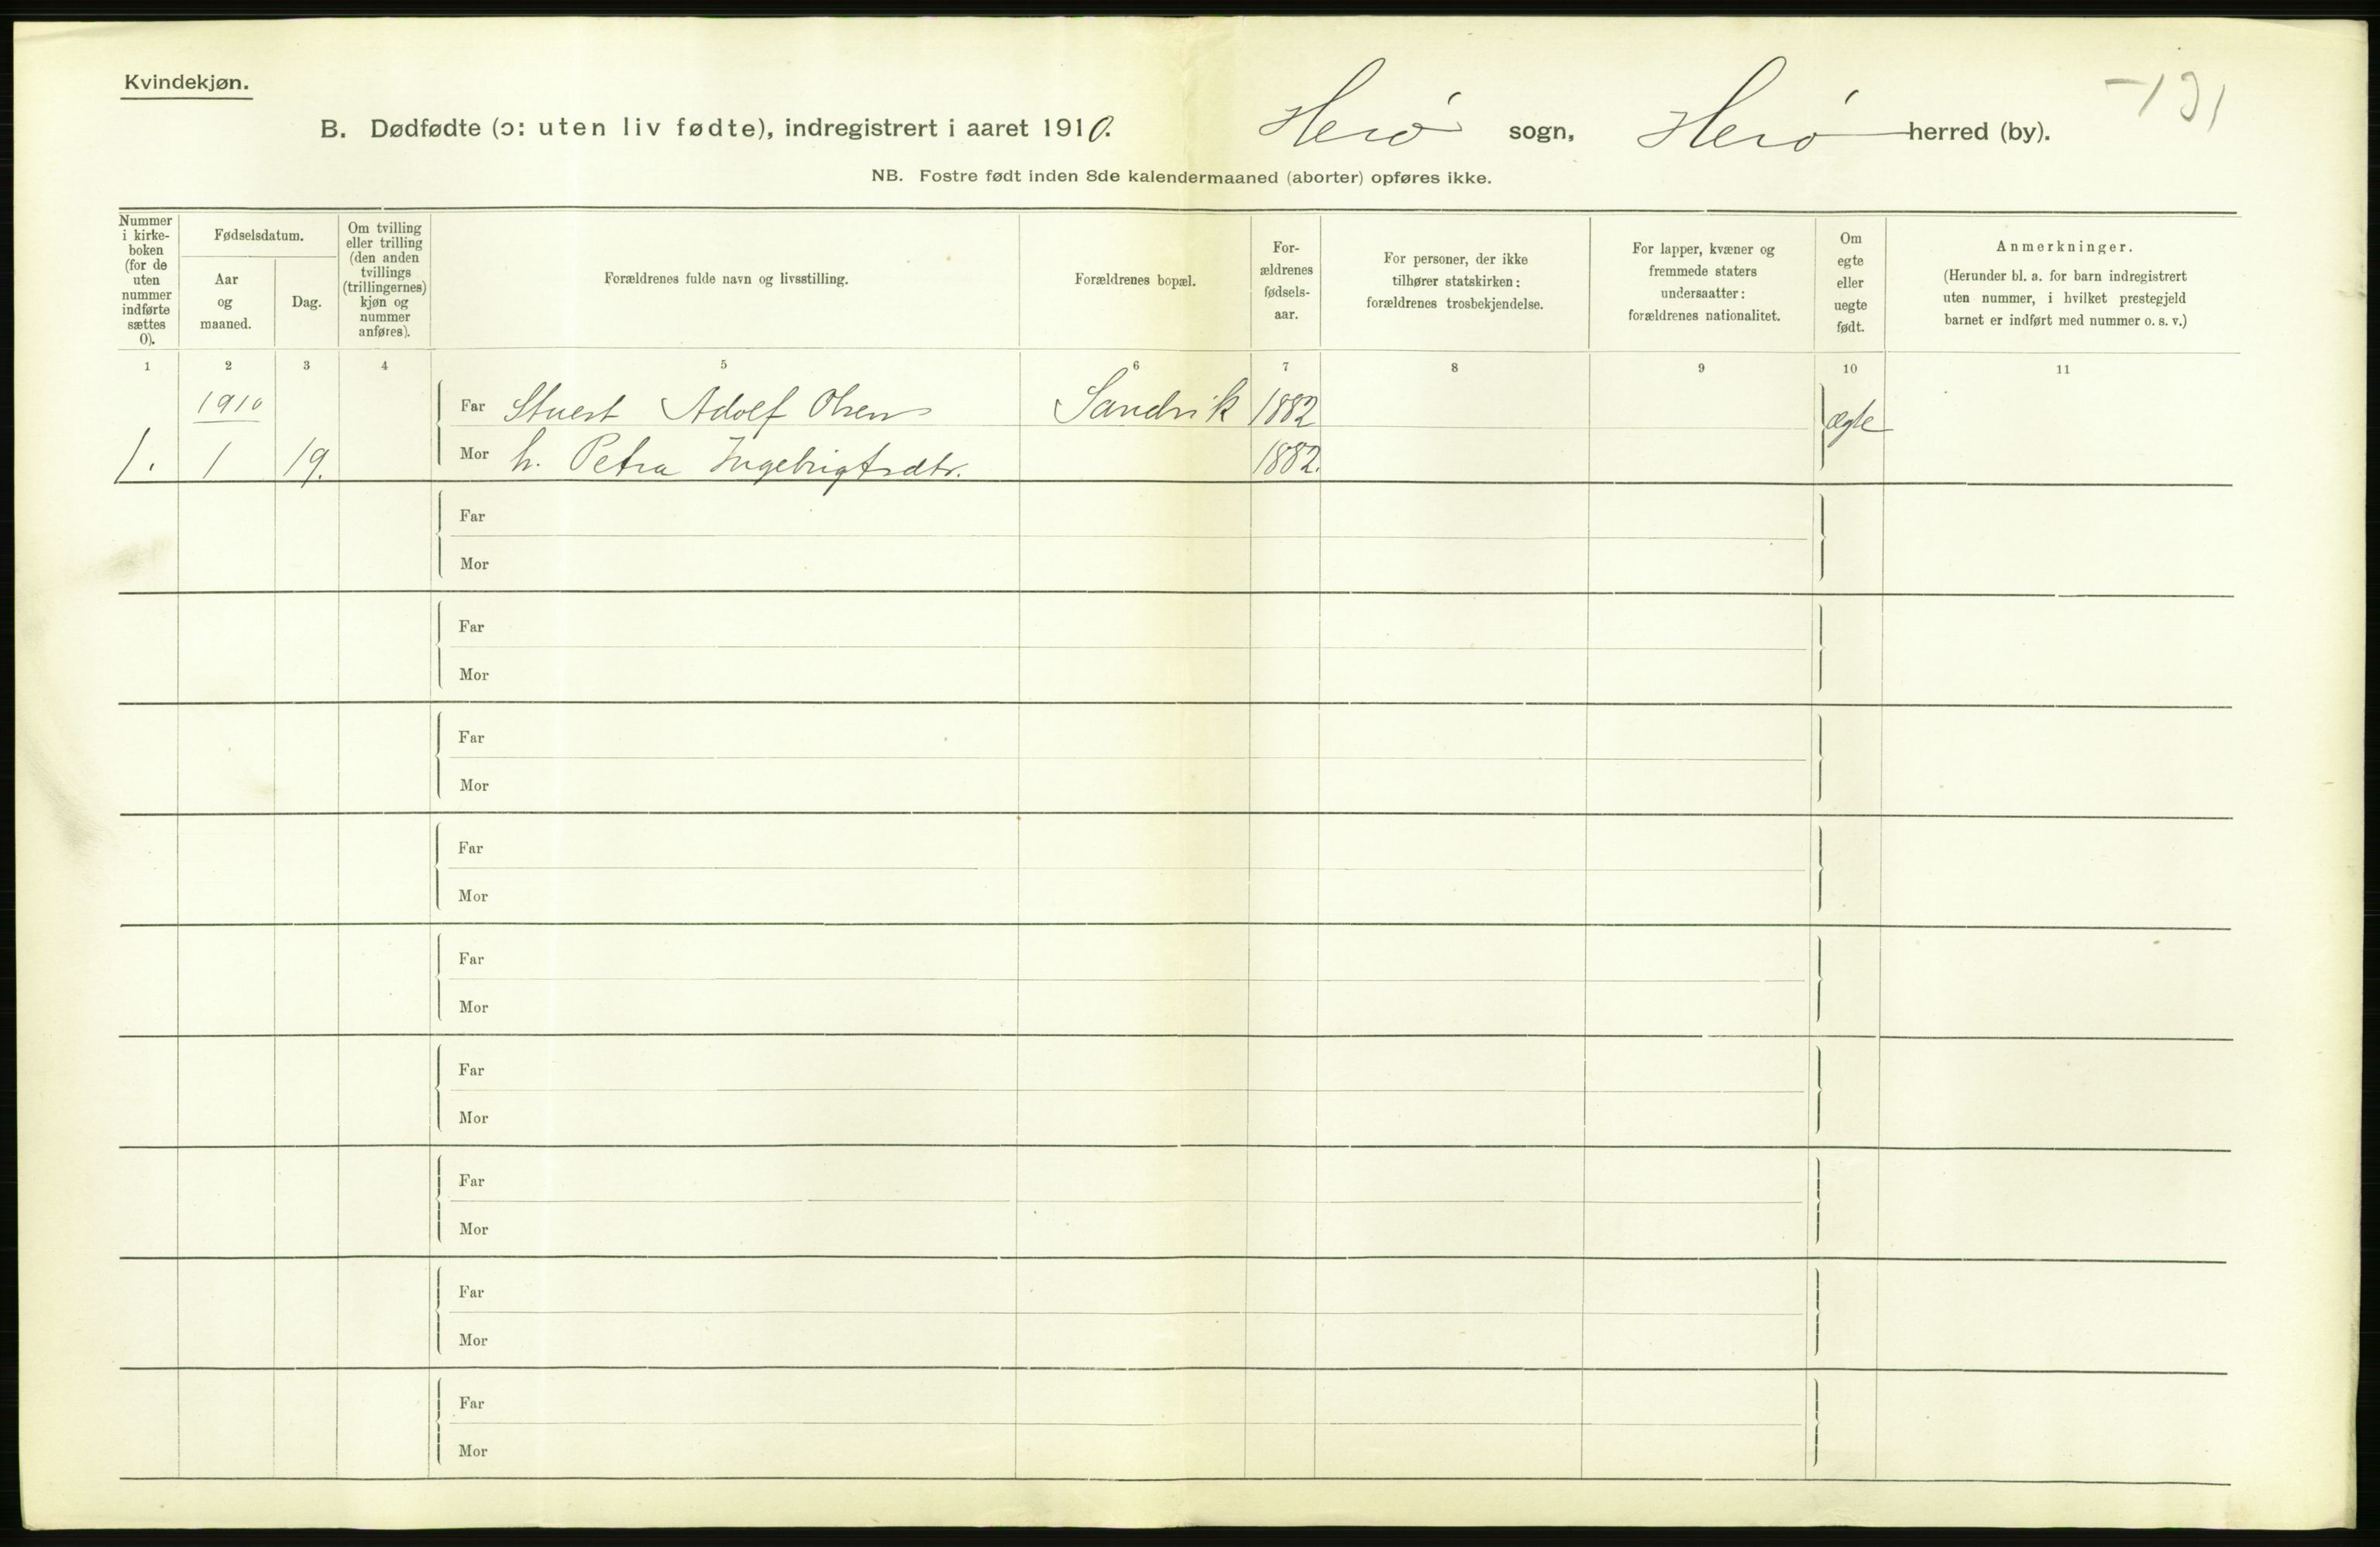 Kvindekjøn.
-131
B. Dødfødte (ɔ: uten liv fødte), indregistrert i aaret 1910. Herø sogn, Herø herred (by).
NB. Fostre født inden 8de kalendermaaned (aborter) opføres ikke.
Nummer i kirke- boken (for de uten nummer indførte sættes 0).
Fødselsdatum.
Aar og maaned.
Dag.
Om tvilling eller trilling (den anden tvillings (trillingernes) kjøn og nummer anføres).
Forældrenes fulde navn og livsstilling.
Forældrenes bopæl.
For- ældrenes fødsels- aar.
For personer, der ikke tilhører statskirken: forældrenes trosbekjendelse.
For lapper, kvæner og fremmede staters undersaatter: forældrenes nationalitet.
Om egte eller uegte født.
Anmerkninger.
(Herunder bl. a. for barn indregistrert uten nummer, i hvilket prestegjeld barnet er indført med nummer o. s. v.)
1 2 3 4 5 6 7 8 9 10 11
1910 Far Stuert Adolf Olsen Sandvik 1882 ægte
1. 1 19. Mor h. Petra Ingebrigtsdtr. 1882.
Far
Mor
Far
Mor
Far
Mor
Far
Mor
Far
Mor
Far
Mor
Far
Mor
Far
Mor
Far
Mor